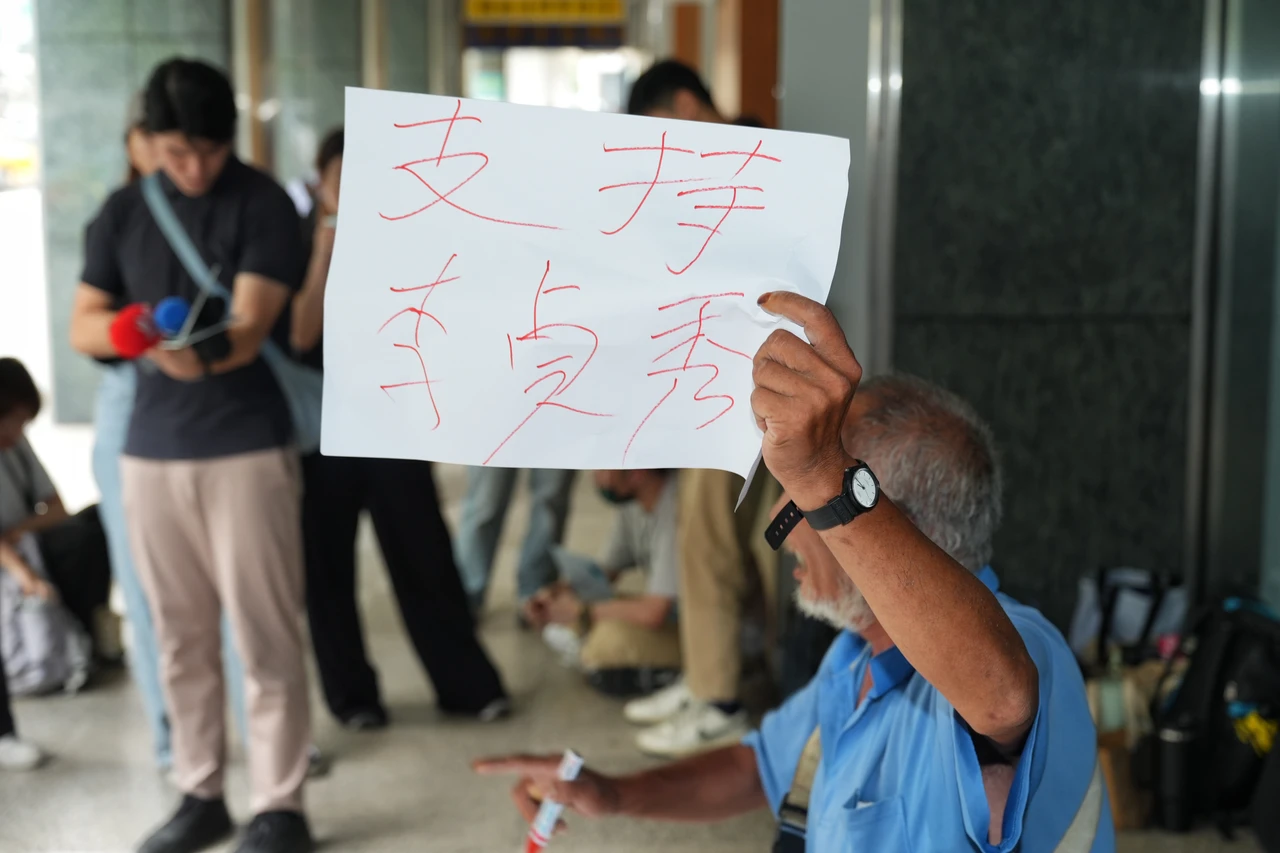 支持
李貞秀